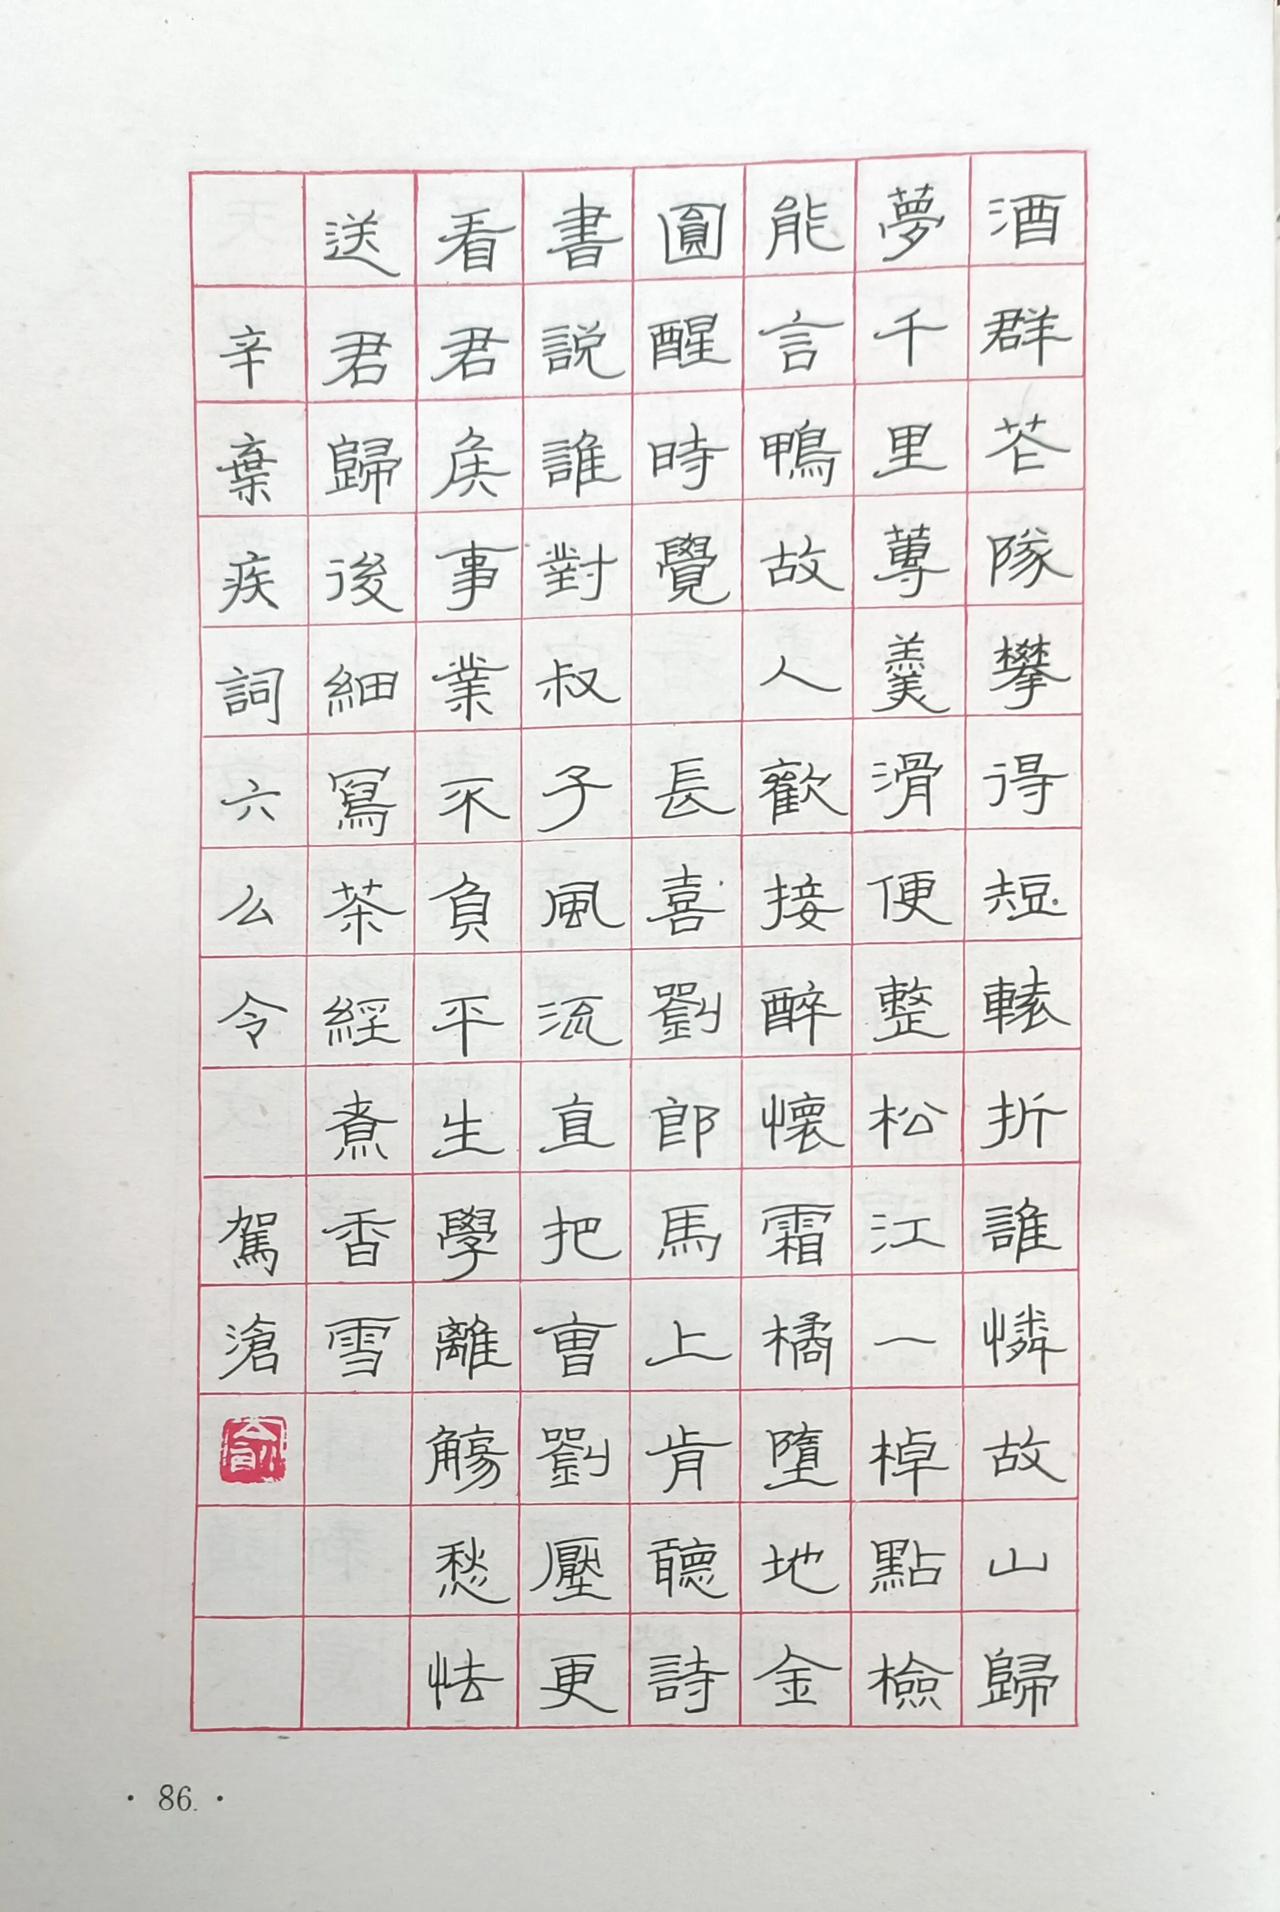 酒群花隊攀得短轅折誰憐故山歸
夢千里蓴羹滑便整松江一棹點檢
能言鴨故人歡接醉懷霜橘墮地金
圓醒時覺 長喜劉郎馬上肯聽詩
書說誰對叔子風流直把曹劉壓更
看君侯事業不負平生學離觴愁怯
送君歸後細寫茶經煮香雪
辛棄疾詞六么令 駕滄
· 86. ·